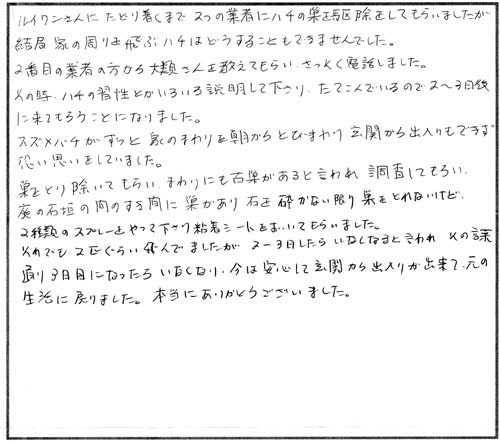 ルイワンさんにたどり着くまで2つの業者にハチの巣を駆除をしてもらいましたが
結局家の周りを飛ぶハチはどうすることもできませんでした。
2番目の業者の方から大類さんを教えてもらい、さっそく電話しました。
その時、ハチの習性とかいろいろ説明して下さり、たてこんでいるので2〜3日後
に来てもらうことになりました。
スズメバチがずっと家のまわりを朝からとびまわり玄関から出入りもできず
恐い思いをしていました。
巣をとり除いてもらい、まわりにも古巣があると言われ調査してもらい、
庭の石垣の間のすき間に巣があり石を砕かない限り巣をとれないけど、
2種類のスプレーをやって下さり粘着シートをおいてもらいました。
それでも2匹ぐらい飛んでましたが2〜3日したらいなくなると言われその言葉
通り3日目になったらいなくなり、今は安心して玄関から出入りが出来て、元の
生活に戻りました。本当にありがとうございました。